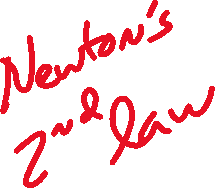 Newton's
2nd law